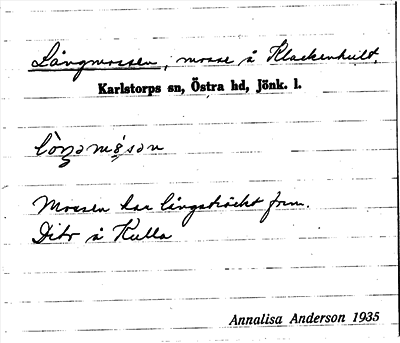 Långmossen, mosse å Klackenhult,
Karlstorps sn, Östra hd, Jönk. l.
Mossen har långsträckt form.
Dito å Kulla
Annalisa Anderson 1935